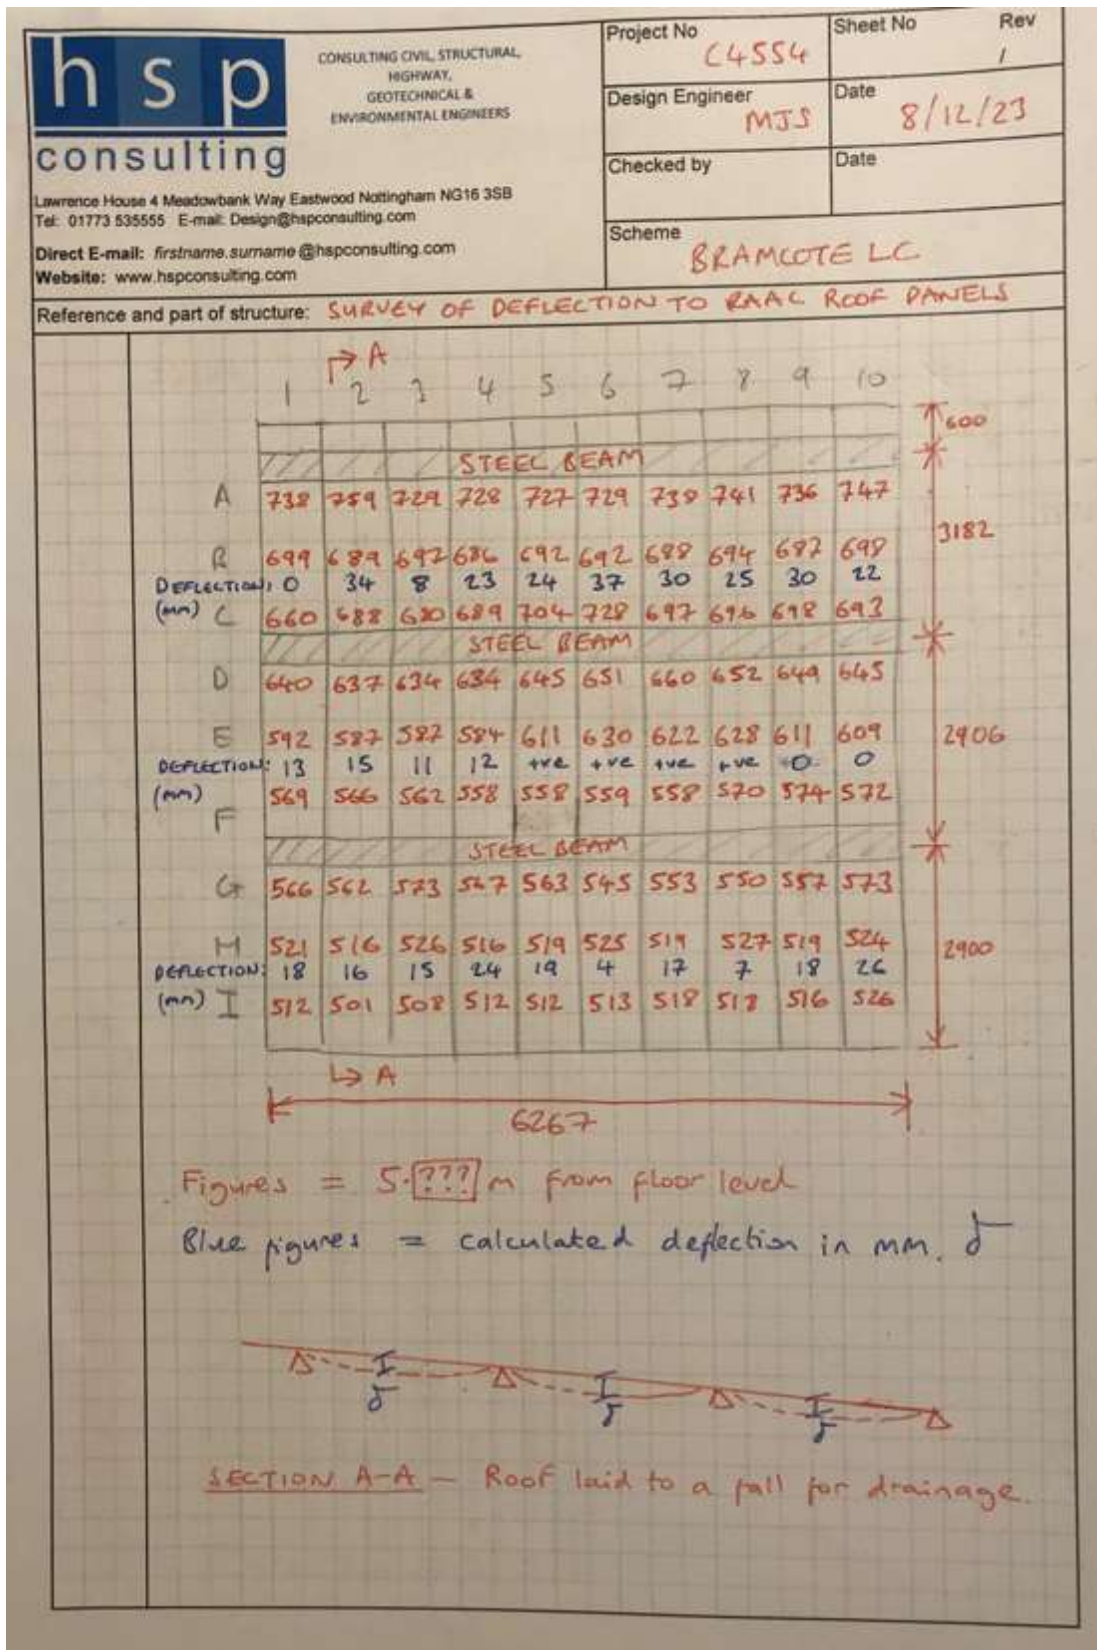 hsp
consulting
CONSULTING CIVIL, STRUCTURAL,
HIGHWAY,
GEOTECHNICAL &
ENVIRONMENTAL ENGINEERS
Lawrence House 4 Meadowbank Way Eastwood Nottingham NG16 3SB
Tel: 01773 535555 E-mail: Design@hspconsulting.com
Direct E-mail: firstname.surname@hspconsulting.com
Website: www.hspconsulting.com
Project No C4554
Sheet No Rev
1
Design Engineer MJS
Date 8/12/23
Checked by
Date
Scheme BRAMCOTE LC
Reference and part of structure: SURVEY OF DEFLECTION TO RAAC ROOF PANELS
A
1 2 3 4 5 6 7 8 9 10
600
STEEL BEAM
A 738 759 729 728 727 729 738 741 736 747
3182
B 699 689 697 686 692 692 688 694 687 698
DEFLECTION: 0 34 8 23 24 37 30 25 30 22
(mm) C 660 688 680 689 704 728 697 696 698 693
STEEL BEAM
D 640 637 634 634 645 651 660 652 649 645
E 592 587 587 584 611 630 622 628 611 609
2906
DEFLECTION: 13 15 11 12 +ve +ve +ve +ve 0 0
(mm) 569 566 562 558 558 559 558 570 574 572
F
STEEL BEAM
G 566 562 573 567 563 545 553 550 557 573
H 521 516 526 516 519 525 519 527 519 524
2900
DEFLECTION: 18 16 15 24 19 4 17 7 18 26
(mm) I 512 501 508 512 512 513 518 518 516 526
A
6267
Figures = 5.??? m from floor level
Blue figures = calculated deflection in mm. δ
δ δ δ
SECTION A-A - Roof laid to a fall for drainage.